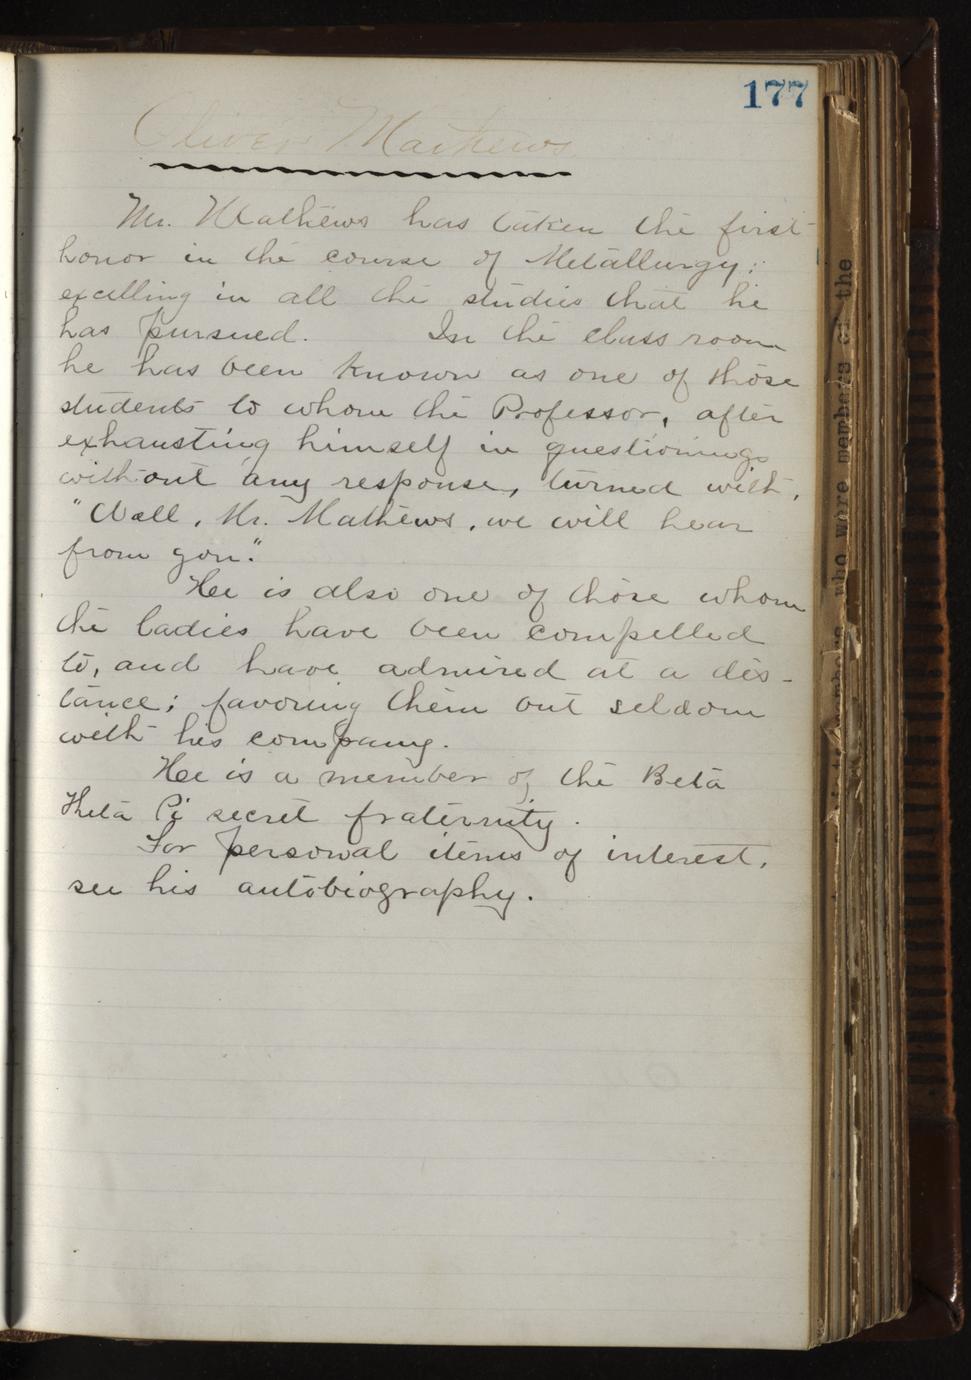 177
Oliver Mathews
Mr. Mathews has taken the first
honor in the course of Metallurgy;
excelling in all the studies that he
has pursued. In the class room
he has been known as one of those
students to whom the Professor, after
exhausting himself in questionings
without any response, turned with,
"Well, Mr. Mathews, we will hear
from you."
He is also one of those whom
the ladies have been compelled
to, and have admired at a dis-
tance; favoring them but seldom
with his company.
He is a member of the Beta
Theta Pi secret fraternity.
For personal items of interest,
see his autobiography.
who were members of the